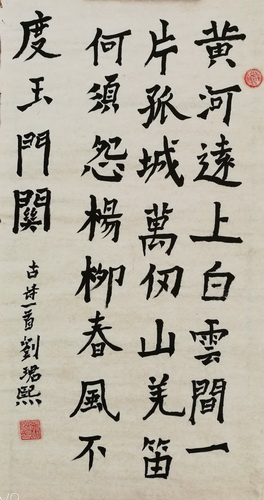 黄河遠上白雲間一
片孤城萬仞山羌笛
何須怨楊柳春風不
度玉門關
古诗一首劉珺熙